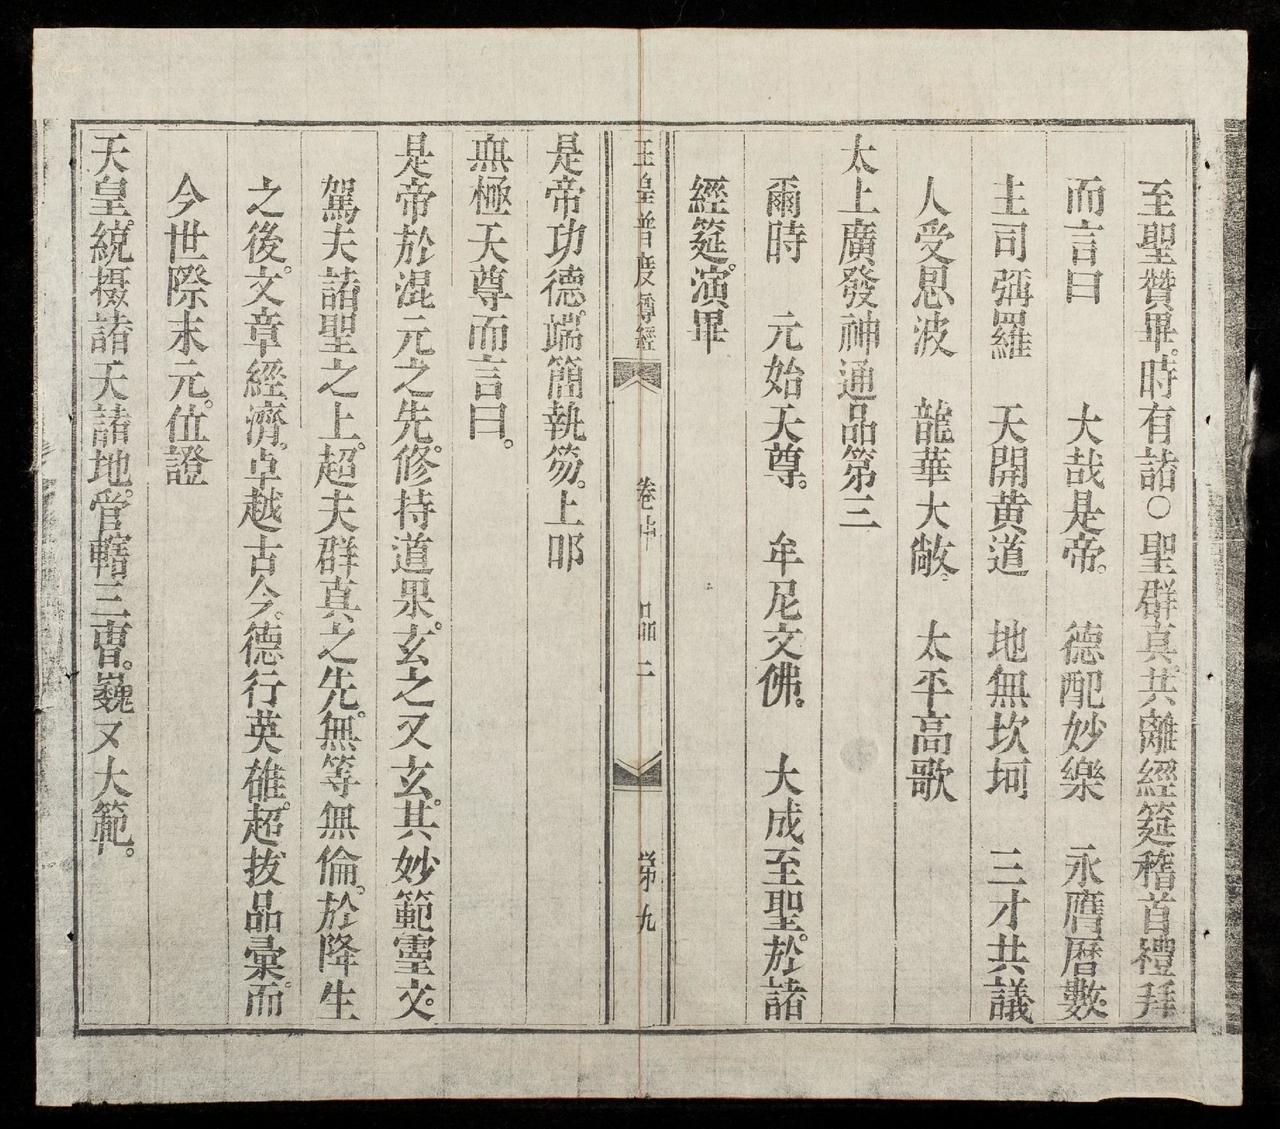 至聖贊畢。時有諸○聖群真。共離經筵稽首禮拜
而言曰 大哉是帝。 德配妙樂 永膺曆數。
主司彌羅 天開黄道 地無坎坷 三才共議
人受恩波 龍華大敞。 太平高歌
太上廣發神通品第三
爾時 元始天尊。 牟尼文佛。 大成至聖。於諸
經筵。演畢
玉皇普度尊經 卷中 品二 第九
是帝功德。端簡執笏。上叩
無極天尊而言曰。
是帝於混元之先。修持道果。玄之又玄。其妙範靈文。
駕夫諸聖之上。超夫群真之先。無等無倫。於降生
之後。文章經濟。卓越古今。德行英雄。超拔品彙。而
今世際末元。位證
天皇。統摄諸天諸地。管轄三曹。巍又大範。